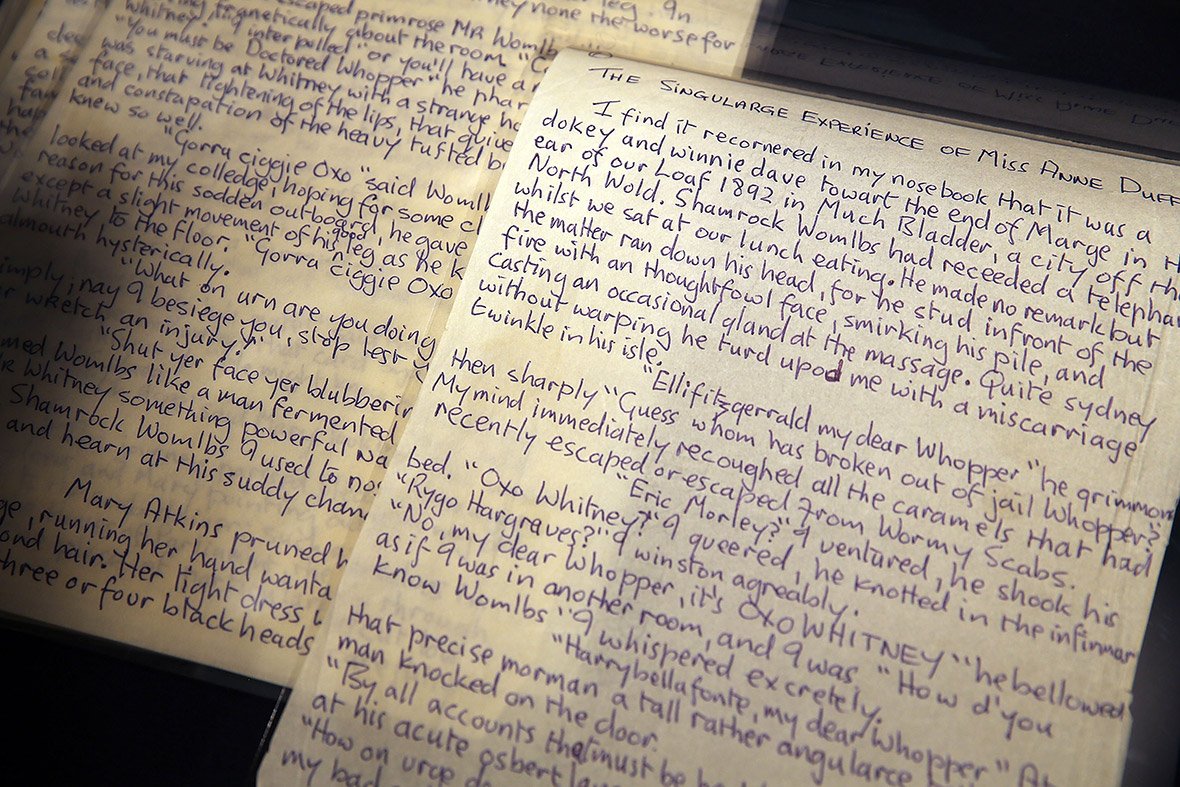 leg. In
they none the worse for
escaped primrose MR Womlbs
frenetically about the room
Whitney" I interpolled "or you'll have a
"You must be Doctored Whopper" he phar
was starving at Whitney with a strange
face, that tightening of the lips, that quive
and constapation of the heavy tufted
knew so well.
"Gorra ciggie Oxo" said Womlb
looked at my colledge, hoping for some
reason for this sodden outboard, he gave
except a slight movement of his good leg as he k
Whitney to the floor. "Gorra Ciggie Oxo
almouth hysterically.
"What on urn are you doing
imply, nay I besiege you, stop lest
wretch an injury."
"Shut yer face yer blubberin
med Womlbs like a man fermented
Whitney something powerful
Shamrock Womlbs I used to no
and hearn at this suddy chan
Mary Atkins pruned
ge, running her hand wanta
ond hair. Her tight dress
three or four blackheads
THE SINGULARGE EXPERIENCE OF MISS ANNE DUFF
I find it recornered in my nosebook that it was a
dokey and winnie dave towart the end of Marge in
ear of our Loaf 1892 in Much Bladder, a city off the
North Wold. Shamrock Womlbs had receeded a telephan
whilst we sat at our lunch eating. He made no remark but
the matter ran down his head, for he stud infront of the
fire with an thoughtfowl face, smirking his pile, and
casting an occasional gland at the massage. Quite sydney
without warping he turd upod me with a miscarriage
twinkle in his isle.
"Ellifitzgerrald my dear Whopper" he grimmon
then sharply "Guess whom has broken out of jail Whopper?"
My mind immediately recoughed all the caramels that had
recently escaped or escaped from Wormy Scabs.
"Eric Morley?" I ventured, he shook his
bed. "Oxo Whitney?" I queered, he knotted in the infirmar
"Rygo Hargraves?" I winston agreably.
"No, my dear Whopper, it's OXO WHITNEY" he bellowed
as if I was in another room, and I was. "How d'you
know Womlbs" I whispered excretely.
"Harrybellafonte, my dear Whopper" At
that precise morman a tall rather angularce
man knocked on the door.
"By all accounts that must be
at his acute osbert
"How on urge
my bad